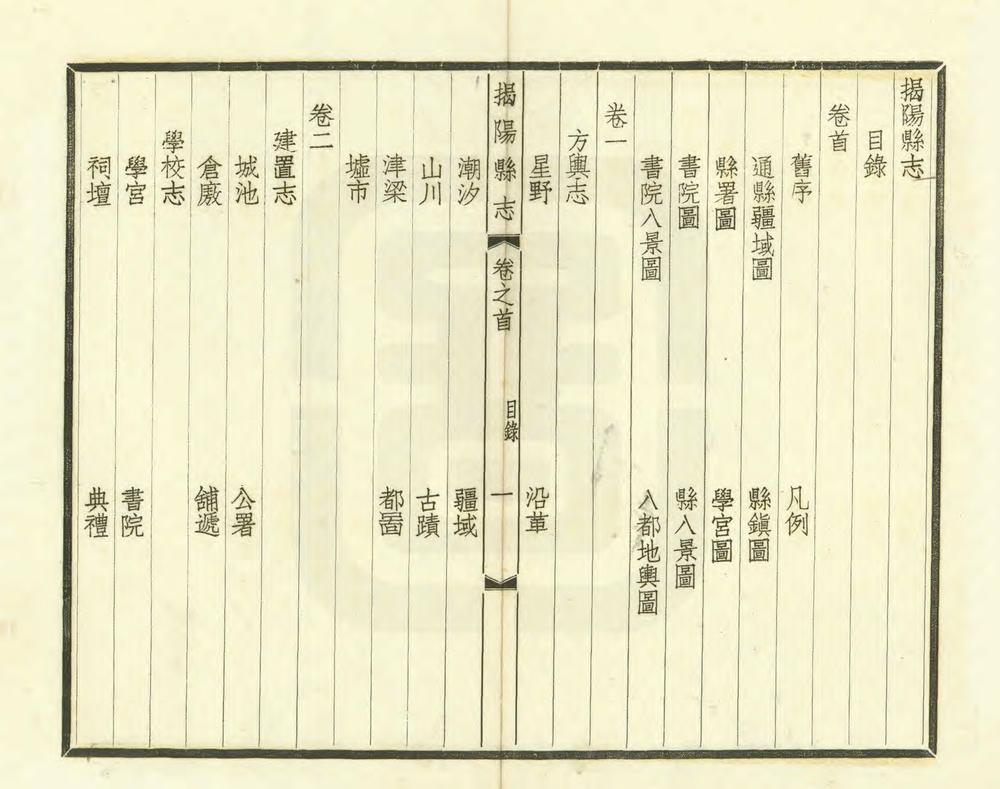 揭陽縣志
目錄
卷首
舊序 凡例
通縣疆域圖 縣鎭圖
縣署圖 學宮圖
書院圖 縣八景圖
書院八景圖 八都地輿圖
卷一
方輿志
星野 沿革
揭陽縣志 卷之首 目錄 一
潮汐 疆域
山川 古蹟
津梁 都啚
墟市
卷二
建置志
城池 公署
倉廒 舖遞
學校志
學宮 書院
祠壇 典禮